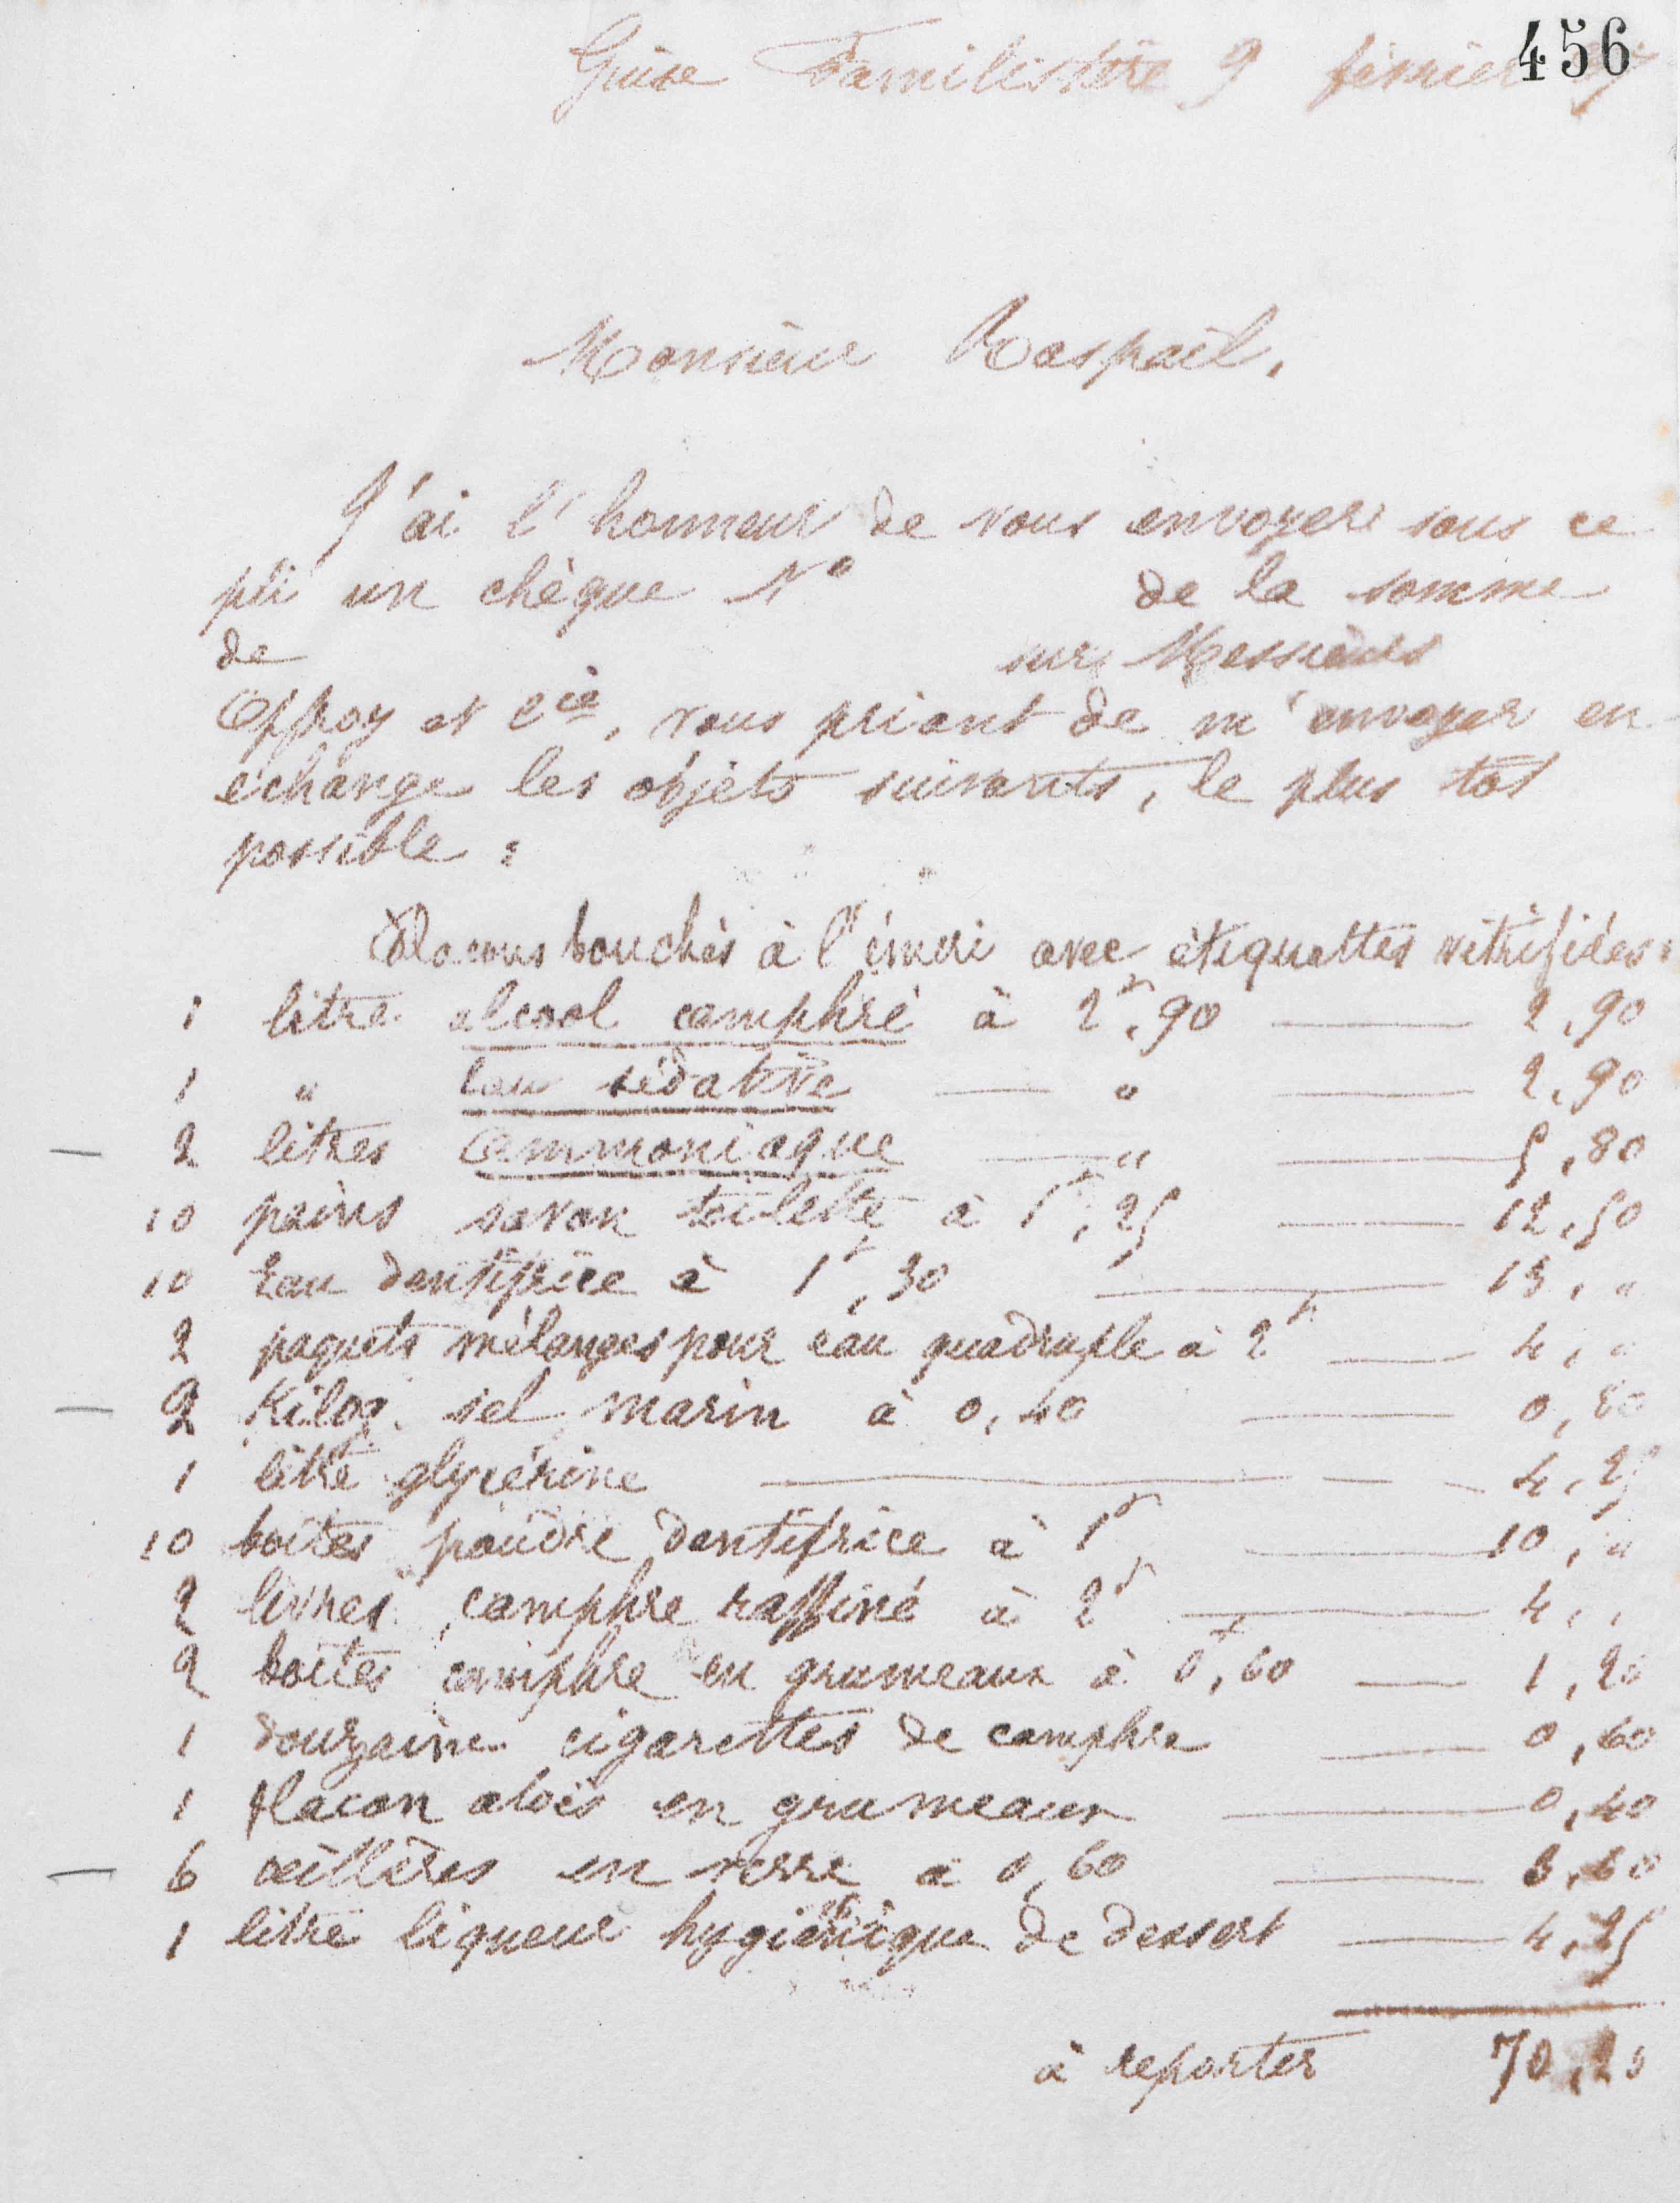 456
Guise Familistère 9 février
Monsieur Raspail,
J'ai l'honneur de vous envoyer sous ce
pli un chèque N° de la somme
de sur Messieurs
Offroy et Cie, vous priant de m'envoyer en
échange les objets suivants, le plus tôt
possible :
Flacons bouchés à l'émeri avec étiquettes vitrifiées :
1 litre alcool camphré à 2f,90 — 2,90
1 " Eau sédative — " — 2,90
— 2 litres Ammoniaque — " — 5,80
10 pains savon toilette à 1f,25 — 12,50
10 Eau dentifrice à 1f,30 — 13, "
2 paquets mélanges pour eau quadruple à 2f — 4, "
— 2 Kilog. sel marin à 0,40 — 0,80
1 litre glycérine — 4,25
10 boîtes poudre dentifrice à 1f — 10, "
2 livres camphre raffiné à 2f — 4, "
2 boîtes camphre en grumeaux à 0f,60 — 1,20
1 douzaine cigarettes de camphre — 0,60
1 flacon aloès en grumeaux — 0,40
— 6 œillères en verre à 0,60 — 3,60
1 litre liqueur hygiénique de dessert — 4,25
à reporter 70,20